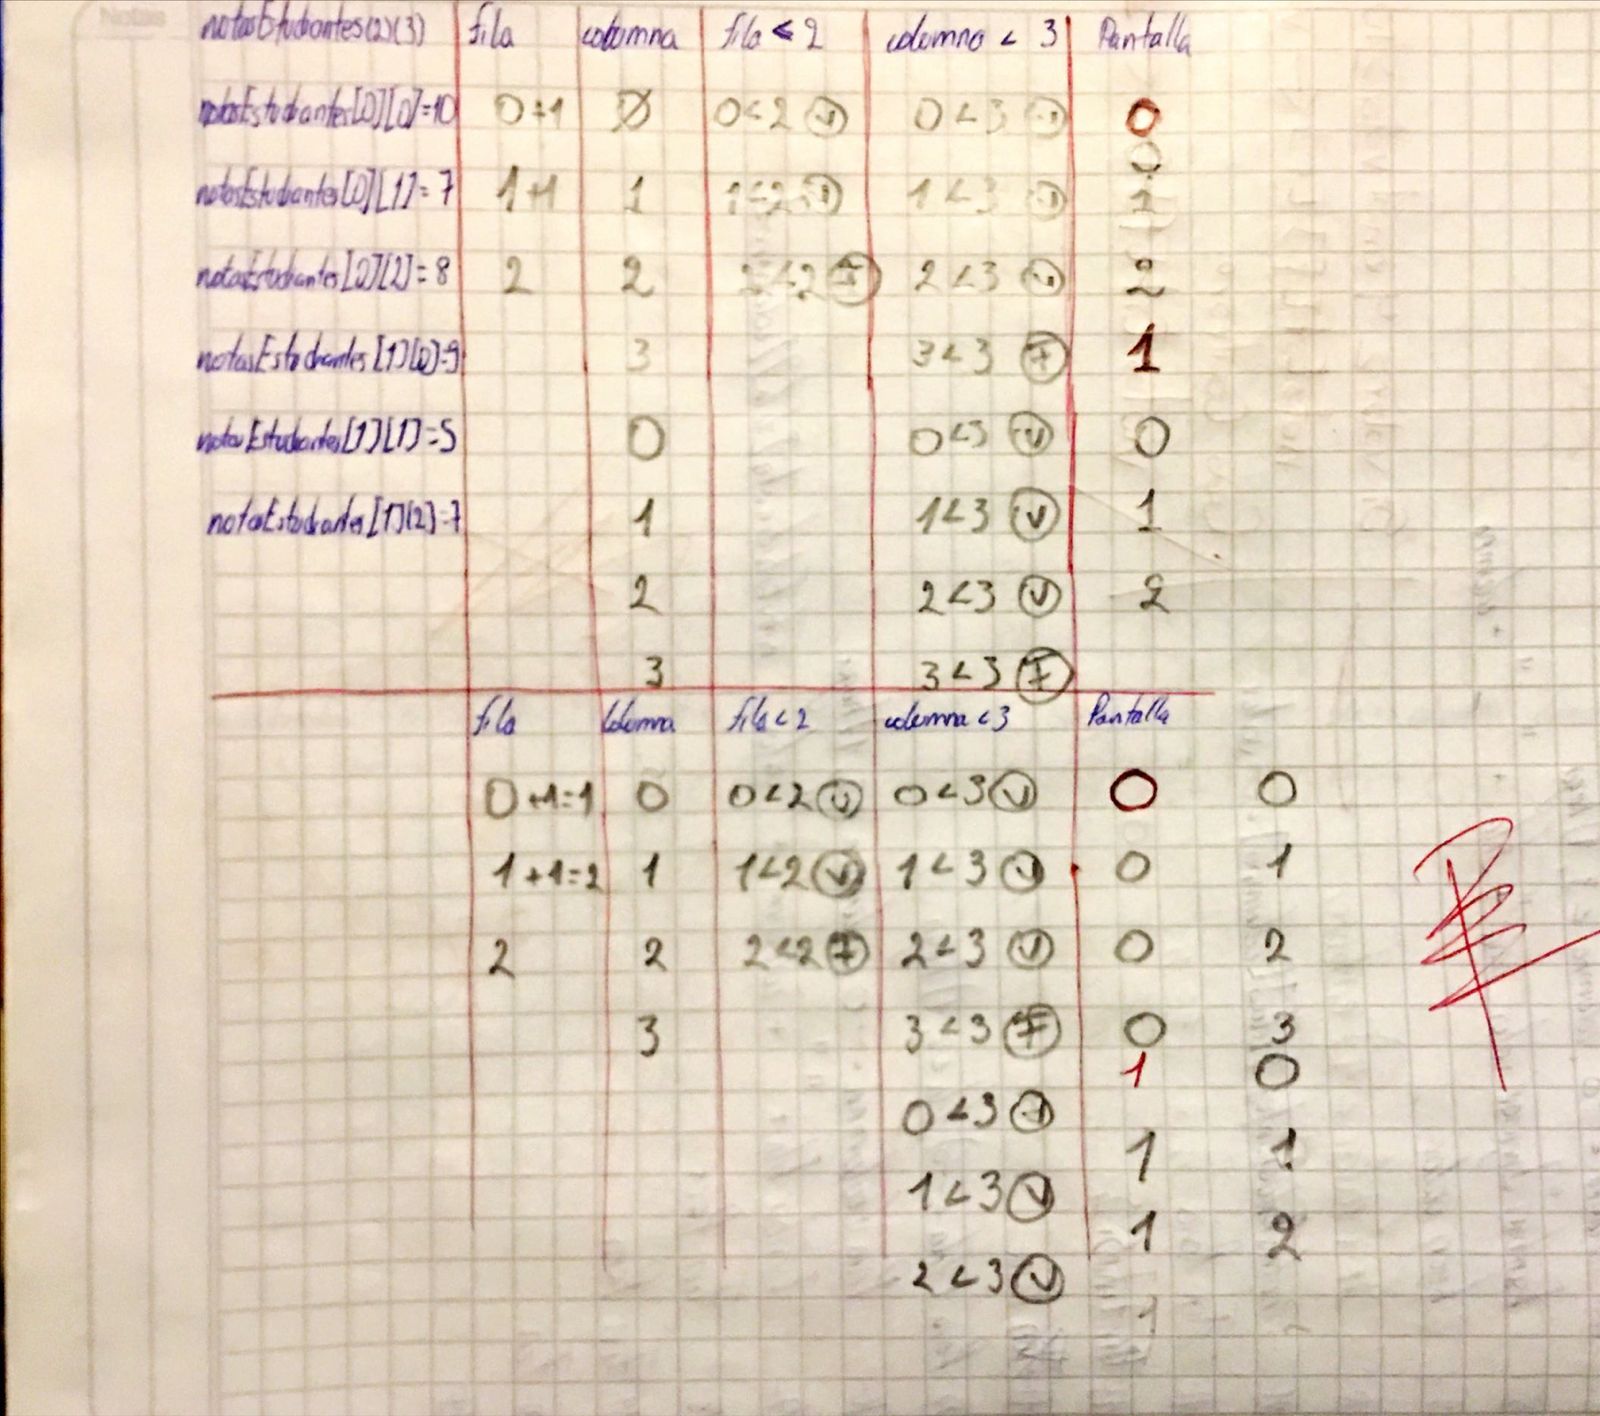 notasEstudiantes(2)(3) fila columna fila < 2 columna < 3 Pantalla
notasEstudiantes[0][0]=10 0+1 0 0<2 V 0<3 V 0
0
notasEstudiantes[0][1]=7 1+1 1 1<2 V 1<3 V 1
notasEstudiantes[0][2]=8 2 2 2<2 F 2<3 V 2
notasEstudiantes[1][0]=9 3 3<3 F 1
notasEstudiantes[1][1]=5 0 0<3 V 0
notasEstudiantes[1][2]=7 1 1<3 V 1
2 2<3 V 2
3 3<3 F
fila Columna fila<2 columna<3 Pantalla
0+1=1 0 0<2 V 0<3 V 0 0
1+1=2 1 1<2 V 1<3 V 0 1
2 2 2<2 F 2<3 V 0 2
3 3<3 F 0 3
1 0
0<3 V
1 1
1<3 V
1 2
2<3 V